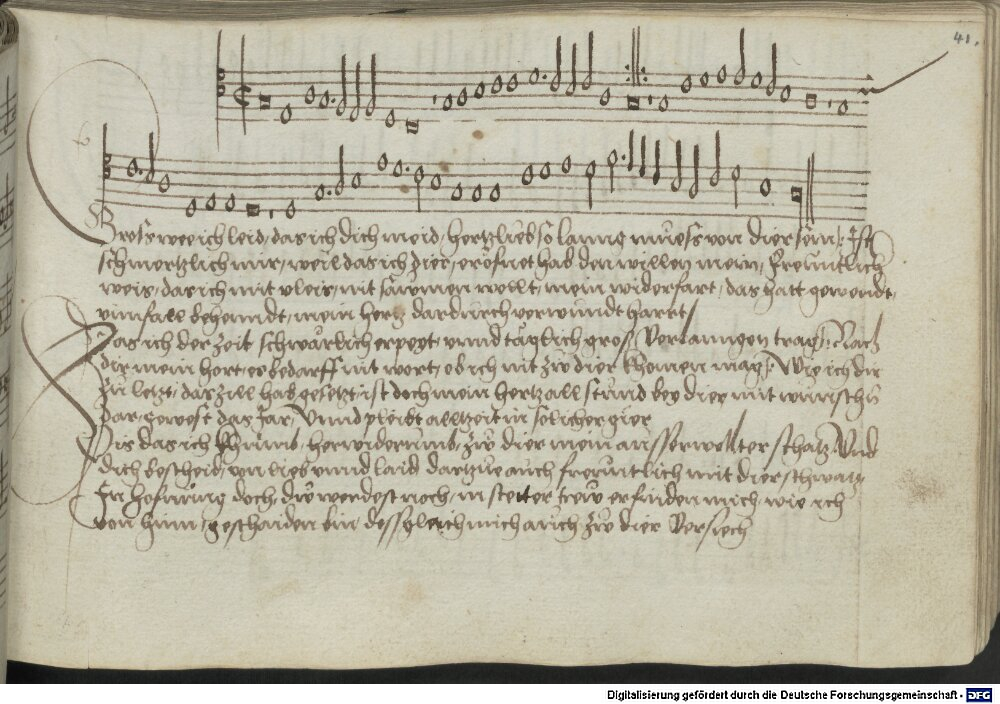 41.
Gros wee ich leid, das ich dich meid, hertzlieb so lanng mues von dier sein, Ist
schmertzlich mir, weil das ich dier, eröfnet hab den willen mein, freuntlich
weis, das ich mit vleis, nit saumen wollt, mein widerfart, das hatt gewendt,
vnnfall behenndt, mein hertz dardurch verwundt hartt
Das ich der Zeit schwärlich erpeyt, vnnd täglich gros Verlanngen trag, Nach
dir mein hort, es bedarff nit wort, ob ich nit zw dier khomen mag, Wie ich dir
zu letzt, das zill hab gesetzt, ist doch mein hertz all stund bey dier, mit wunsch
dar, gewest das Jar, Vnnd pleibt alltzeit in solicher gier
Bis das ich khumb, herwiderumb, zw dier mein ausserwelter schatz, Vnd
dich bescheid, von lieb vnnd laid, dartzue auch freuntlich mit dier schwatz
In hofnung doch, du werdest noch, in steiter trew erfinden mich, wie ich
von hinn, geschaiden bin, dessgleich mich auch zw dier Versiech
Digitalisierung gefördert durch die Deutsche Forschungsgemeinschaft - DFG